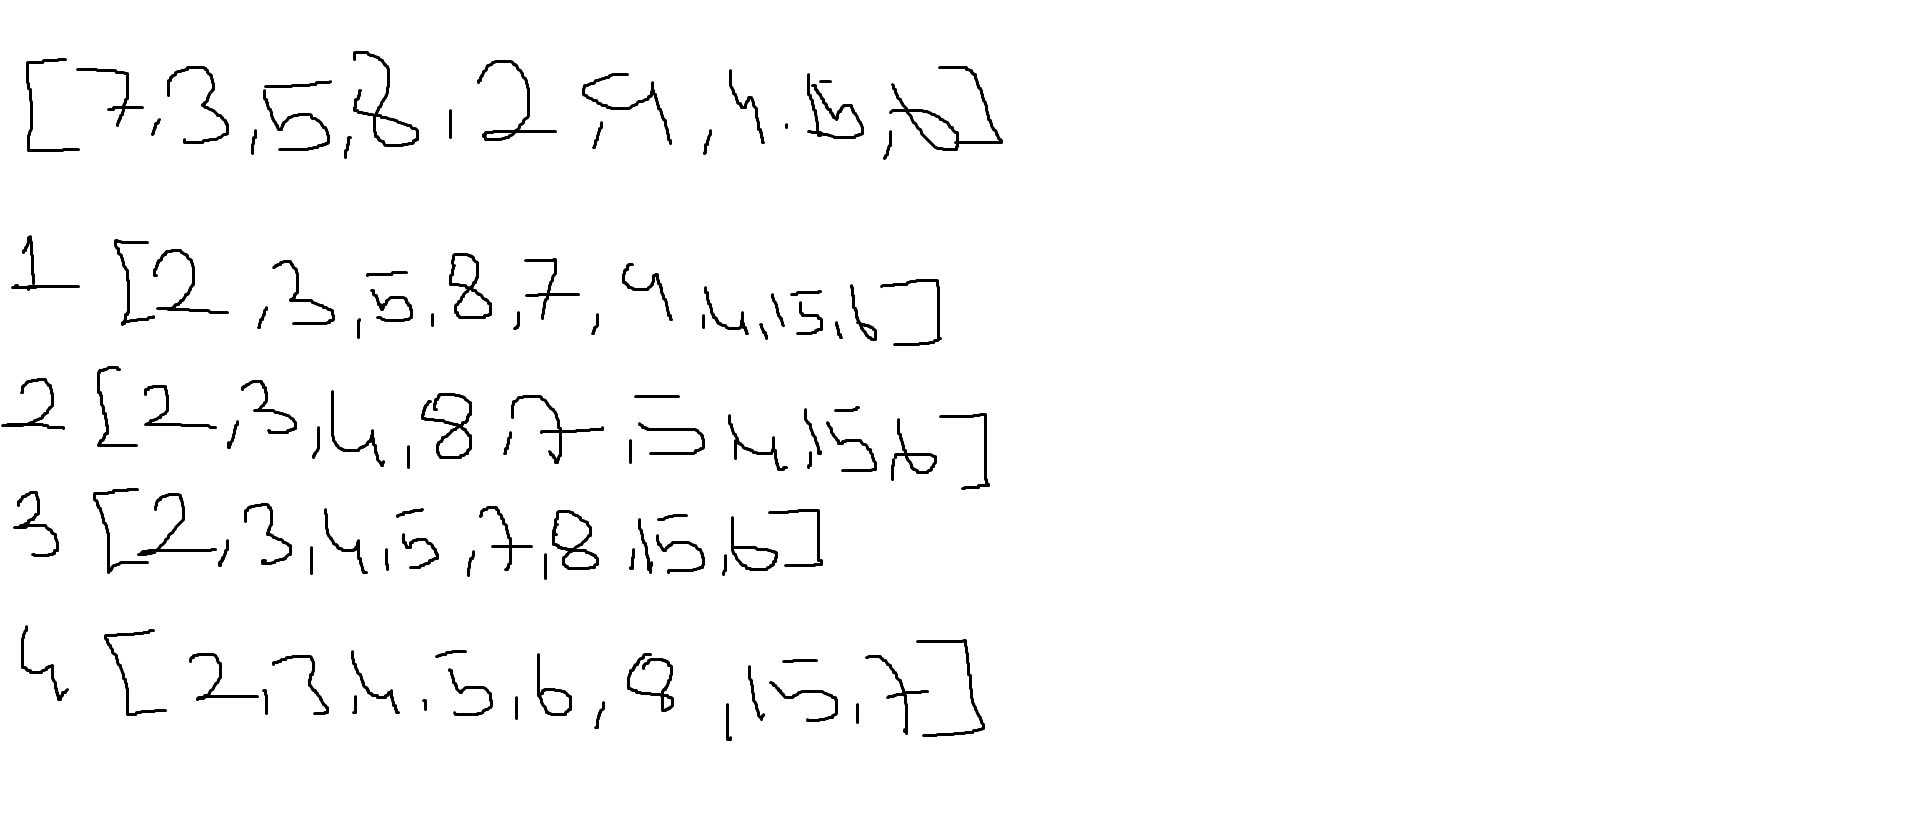 [7,3,5,8,2,9,4.15,6]
1 [2,3,5,8,7,9,4,15,6]
2 [2,3,4,8,7,5 4,15,6]
3 [2,3,4,5,7,8,15,6]
4 [2,3,4.5,6,8,15,7]